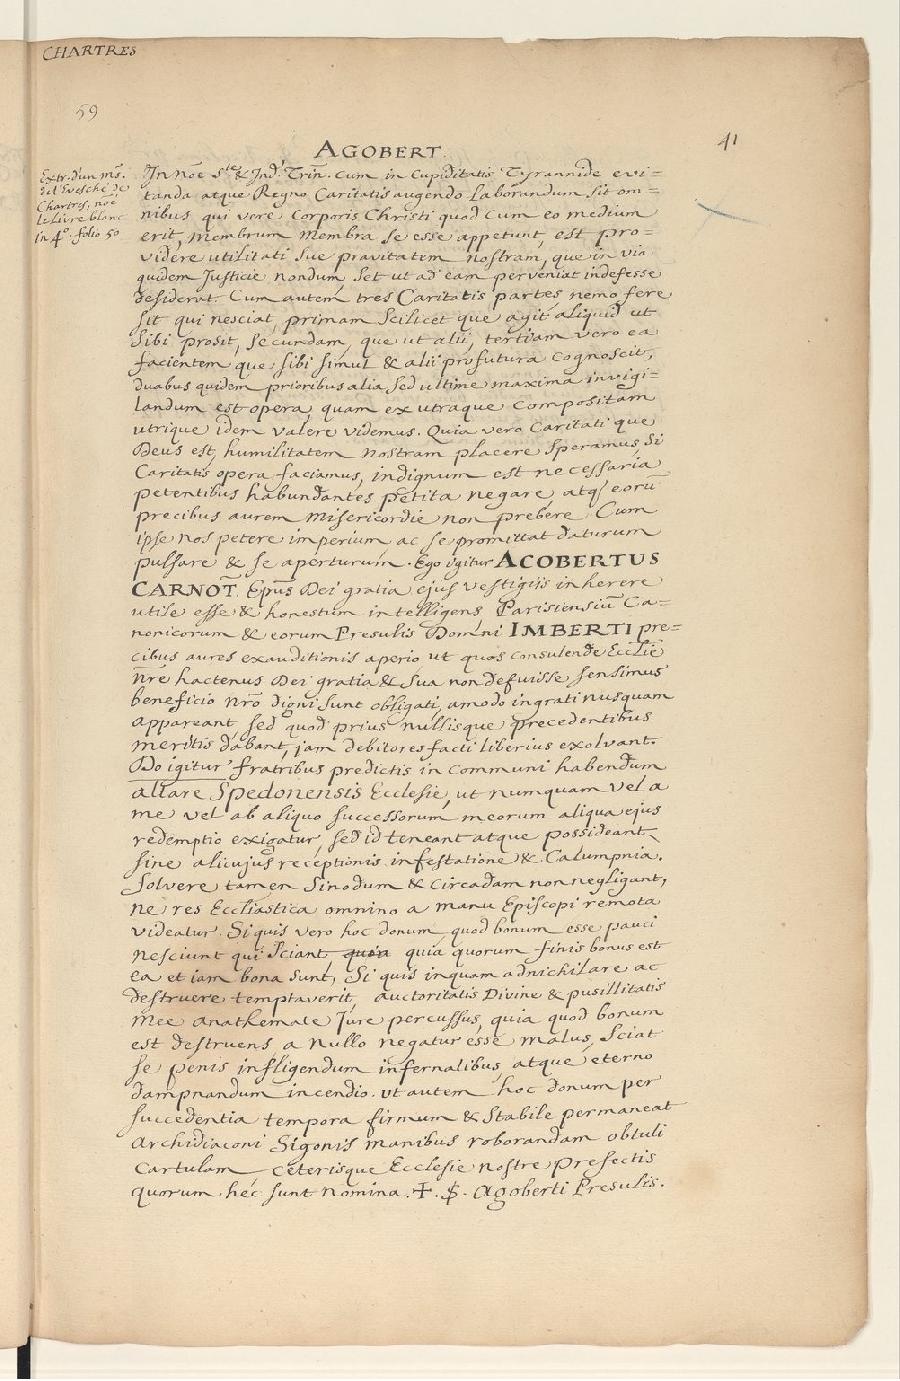 CHARTRES
59
41
AGOBERT.
Extr. d'un ms.
del Evesché de
Chartres, nõe
Le Livre blanc
in 4°. folio 50
In Nõe Stæ & Ind. Trin. cum in Cupiditatis Tyrannide evi=
tanda atque Regno Caritatis augendo Laborandum sit om=
nibus qui vere Corporis Christi quod cum eo medium
erit, membrum membra se esse appetunt, est pro=
videre utilitati sue pravitatem nostram, que in via
quidem Justicie nondum, set ut ad eam perveniat indefesse
desiderat. Cum autem tres Caritatis partes nemo fere
sit qui nesciat, primam scilicet que agit aliquid ut
sibi prosit, secundam, que ut alii, tertiam vero ea
facientem que sibi simul & alii profutura cognoscit,
duabus quidem prioribus alia sed ultime maxima invigi=
landum est opera, quam ex utraque compositam
utrique idem valere videmus. Quia vero Caritati que
Deus est, humilitatem nostram placere speramus, si
Caritatis opera faciamus, indignum est necessaria
petentibus habundantes petita negare, atq; eorū
precibus aurem misericordie non prebere. Cum
ipse nos petere imperium ac se promittat daturum
pulsare & se aperturum. Ego igitur ACOBERTUS
CARNOT̄. Ep̄us Dei gratia ejus vestigiis inherere
utile esse & honestum intelligens Parisiensiū Ca=
nonicorum & eorum Presulis Domni IMBERTI pre=
cibus aures exauditionis aperio ut quos consulende Ecclīe
nr̄e hactenus Dei gratia & sua non defuisse sensimus
beneficio nr̄o digni sunt obligati, amodo ingrati nusquam
appareant sed quod prius nullisque precedentibus
meritis dabant, jam debitores facti liberius exolvant.
Do igitur fratribus predictis in communi habendum
altare Spedonensis Ecclesie, ut numquam vel a
me vel ab aliquo successorum meorum aliqua ejus
redemptio exigatur, sed id teneant atque possideant
sine alicujus receptionis infestatione & Calumpnia.
solvere tamen Sinodum & Circadam non negligant,
ne res Eccliastica omnino a manu Episcopi remota
videatur. Si quis vero hoc donum quod bonum esse pauci
nesciunt qui sciant quia quia quorum finis bonus est
ea et iam bona sunt, Si quis inquam adnichilare ac
destruere temptaverit, auctoritatis Divine & pusillitatis
mee anathemate Jure percussus, quia quod bonum
est destruens a nullo negatur esse malus, sciat
se penis infligendum infernalibus, atque eterno
dampnandum incendio. ut autem hoc donum per
succedentia tempora firmum & stabile permaneat
Archidiaconi Sigonis manibus roborandam obtuli
Cartulam ceterisque Ecclesie nostre prefectis
quorum hec sunt nomina. ✝. $. Agoberti Presulis.